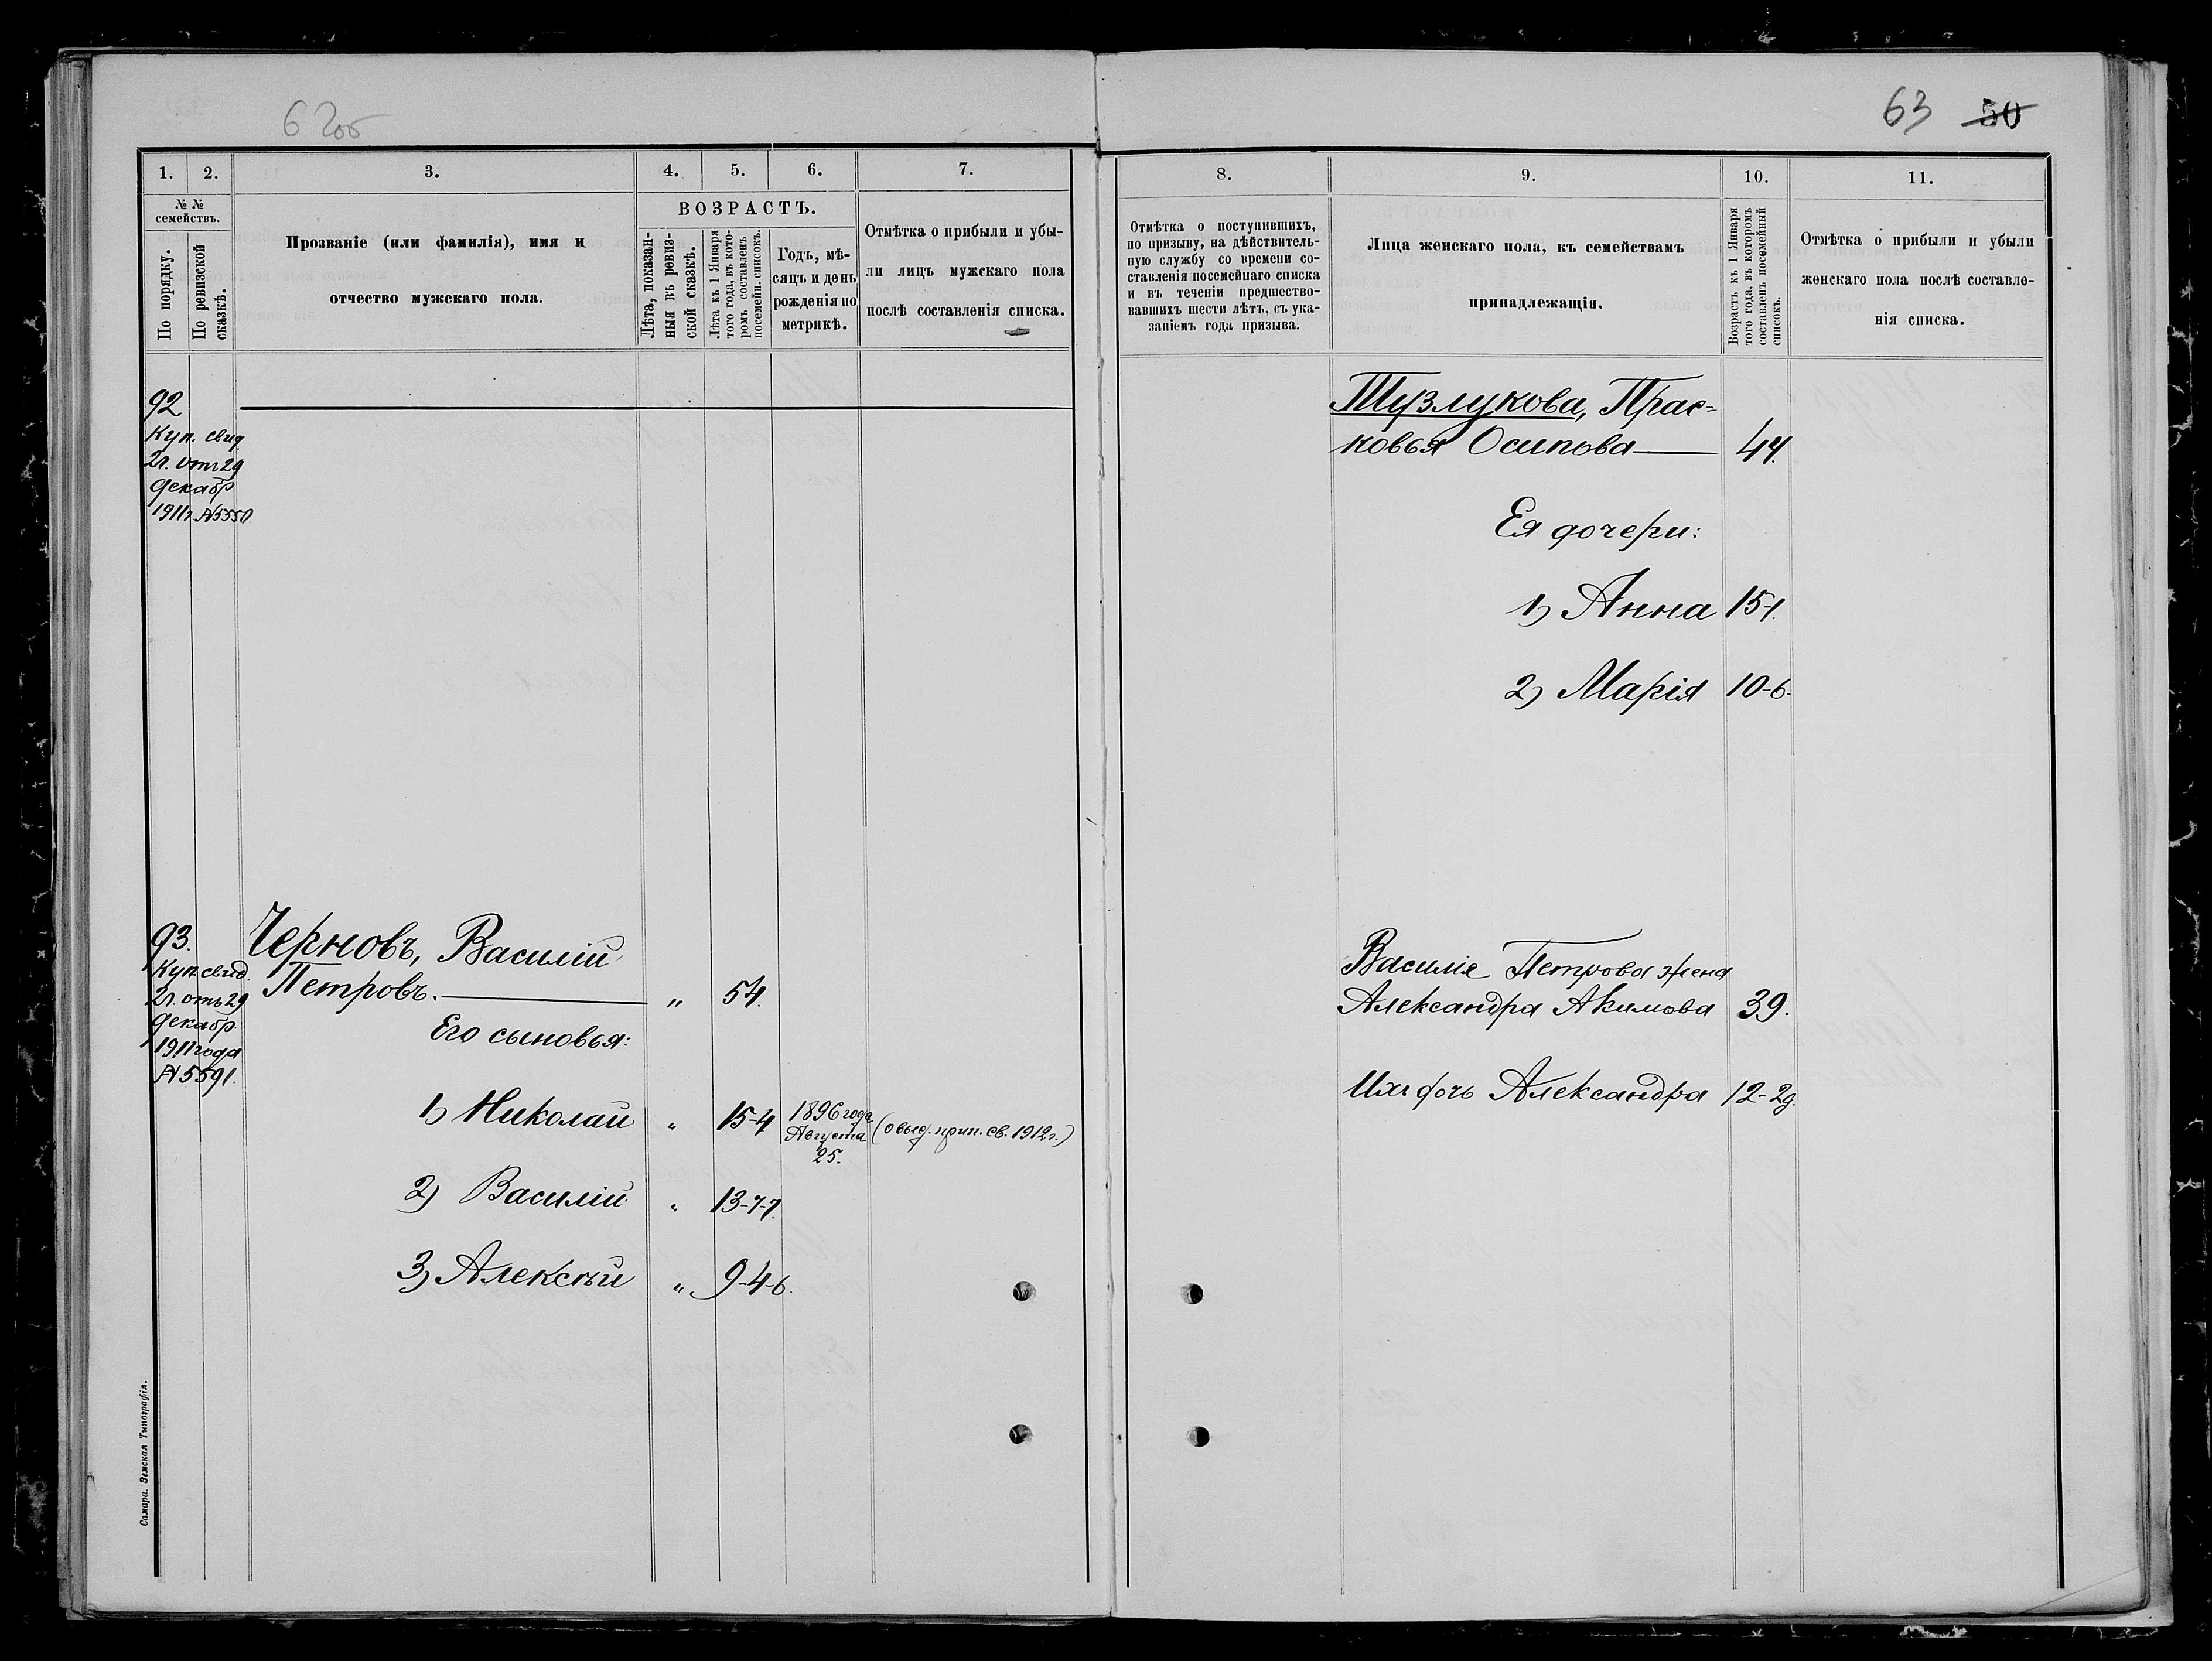 62об
1.
2.
3.
4.
5.
6.
7.
№ №
семействъ.
По порядку.
По ревизской
сказкѣ.
Прозваніе (или фамилія), имя и
отчество мужскаго пола.
ВОЗРАСТЪ.
Лѣта, показан-
ныя въ ревиз-
ской сказкѣ.
Лѣта къ 1 Января
того года, въ кото-
ромъ составленъ
посемейн. списокъ.
Годъ, мѣ-
сяцъ и день
рожденія по
метрикѣ.
Отмѣтка о прибыли и убы-
ли лицъ мужскаго пола
послѣ составленія списка.
92
Куп. свид.
2г. отъ 29
декабр
1911г. №5550
93.
Куп. свид.
2г. отъ 29
декабр.
1911 года
№5591.
Черновъ, Василій
Петровъ. „ 54.
Его сыновья:
1) Николай „ 15-4
1896 года
Августа
25.
(о выд. прип. св. 1912г.)
2) Василій „ 13-7-7.
3) Алексѣй „ 9-4-6.
Самара. Земская Типографія.
63 50
8.
9.
10.
11.
Отмѣтка о поступившихъ,
по призыву, на дѣйствитель-
ную службу со времени со-
ставленія посемейнаго списка
и въ теченіи предшество-
вавшихъ шести лѣтъ, съ ука-
заніемъ года призыва.
Лица женскаго пола, къ семействамъ
принадлежащія.
Возрастъ къ 1 Января
того года, въ которомъ
составленъ посемейный
списокъ.
Отмѣтка о прибыли и убыли
женскаго пола послѣ составле-
нія списка.
Тузлукова, Прас-
ковья Осипова 44.
Ея дочери:
1) Анна 15-1.
2) Марія 10-6.
Василія Петрова жена
Александра Акимова 39.
Ихъ дочь Александра 12-2д.